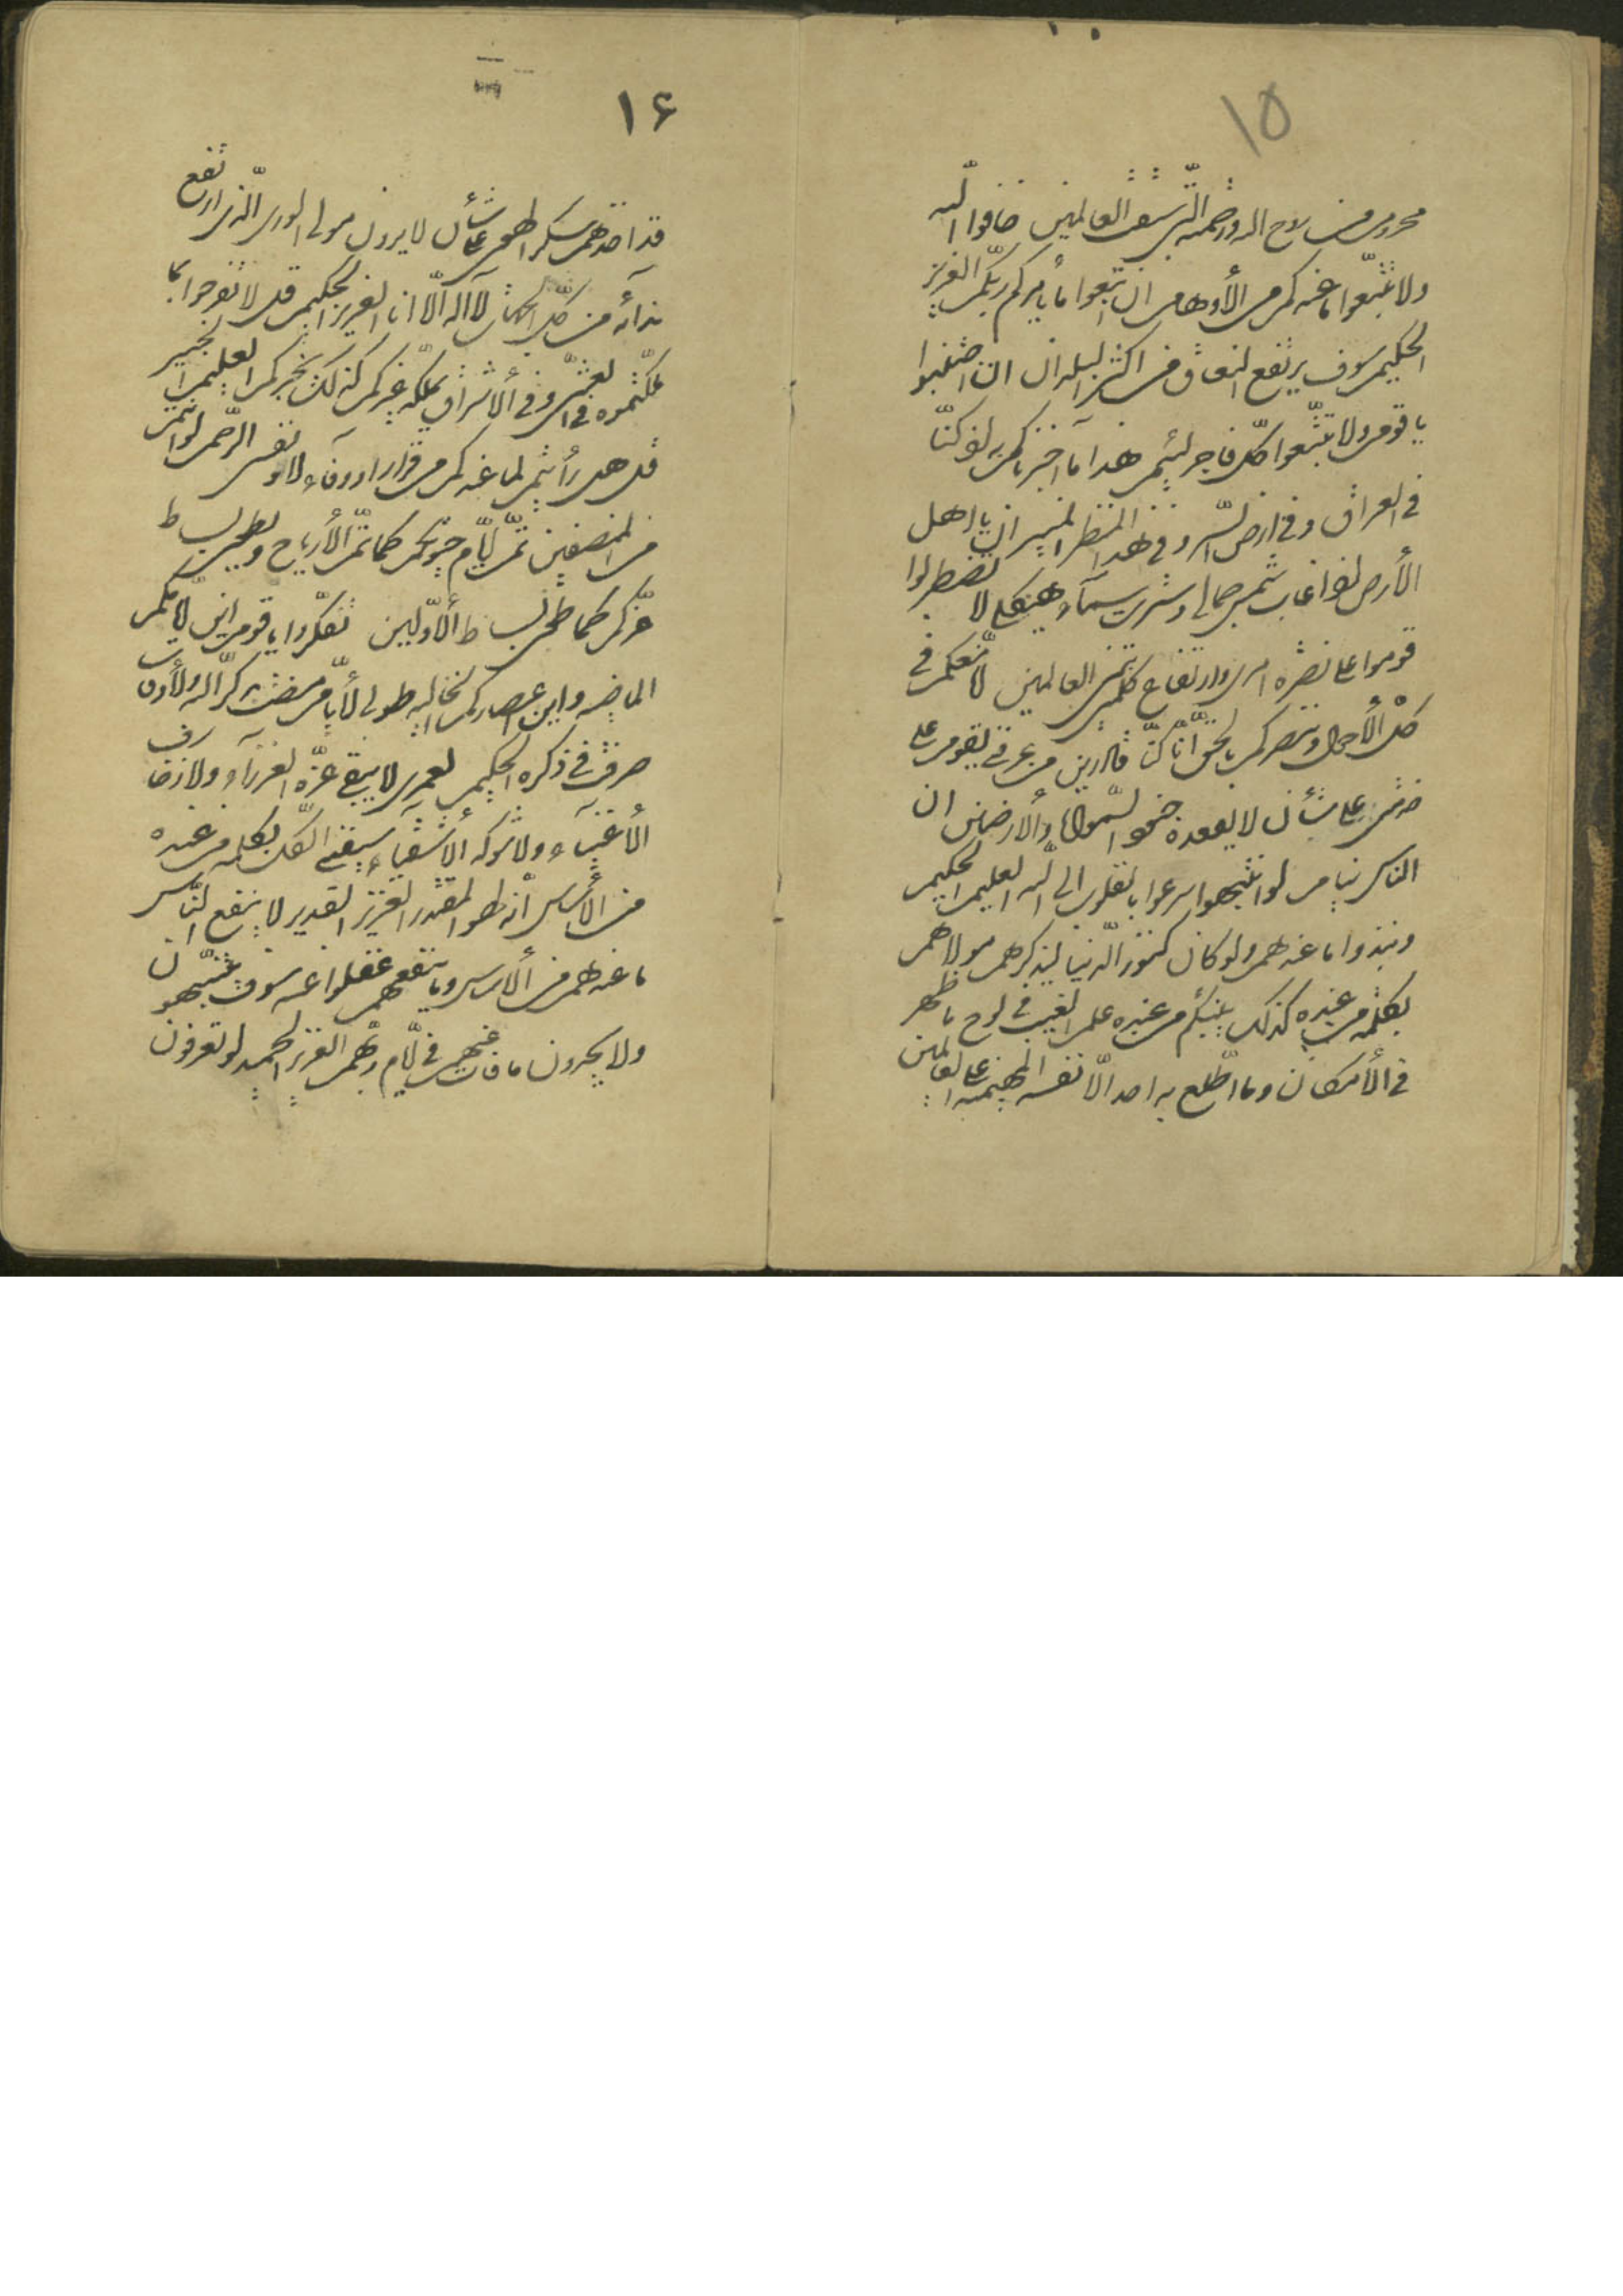 ١٥
محروم من روح الله ورحمته الّتى سبقت العالمين خافوا اللّه
ولا تتّبعوا ما عندكم من الأوهام ان اتّبعوا ما يأمركم به ربّكم العزيز
الحكيم سوف يرتفع النعاق من اكثر البلدان ان اجتنبوا
يا قوم ولا تتّبعوا كلّ فاجر لئيم هذا ما اخبرناكم به اذ كنّا
فى العراق وفى ارض السّر وفى هذا المنظر المنير ان يا اهل
الأرض اذا غابت شمس جمالى وسترت سمآء هيكلى لا تضطربوا
قوموا على نصرة امرى وارتفاع كلمتى بين العالمين انّا معكم فى
كلّ الأحوال وننصركم بالحقّ انّا كنّا قادرين من عرفنى يقوم على
خدمتى على شأن لا يقعده جنود السّموات والأرضين ان
الناس نيام لو انتبهوا سرعوا بالقلوب الى اللّه العليم الحكيم
ونبذوا ما عندهم ولو كان كنوز الدّنيا ليذكرهم مولاهم
بكلمة من عنده كذلك ينبّئكم من عنده علم الغيب فى لوح ما ظهر
فى الأمكان وما اطّلع به احد الّا نفسه المهيمنة على العالمين
١۶
قد اخذهم سكر الهوى على شأن لا يرون مولى الورى الّذى ارتفع
ندآئه من كلّ الجهات لا اله الّا انا العزيز الحكيم قل لا تفرحوا بما
ملكتموه فى العشىّ وفى الأشراق يملكه غيركم كذلك يخبركم العليم الخبير
قل هل رأيتم لما عندكم من قرار او وفآء لا ونفسى الرّحمن لو انتم
من المنصفين تمرّ ايّام حيوتكم كما تمرّ الأرياح ويطوى بساط
عزّكم كما طوى بساط الأوّلين تفكّروا يا قوم اين ايّامكم
الماضية واين اعصاركم الخالية طوبى لأيّام مضت بذكر اللّه ولأوقات
صرفت فى ذكره الحكيم لعمرى لا تبقى عزّة العزرآء ولا زخارف
الأغنيآء ولا شوكة الأشقيآء سيفنى الكلّ بكلمة من عنده
من الأساس انه لهو المقتدر العزيز القدير لا ينفع النّاس
ما عندهم من الأساس وما ينفعهم غفلوا عنه سوف ينتبهون
ولا يجدون ما فات عنهم فى ايّام ربّهم العزيز الحميد لو تعرفون